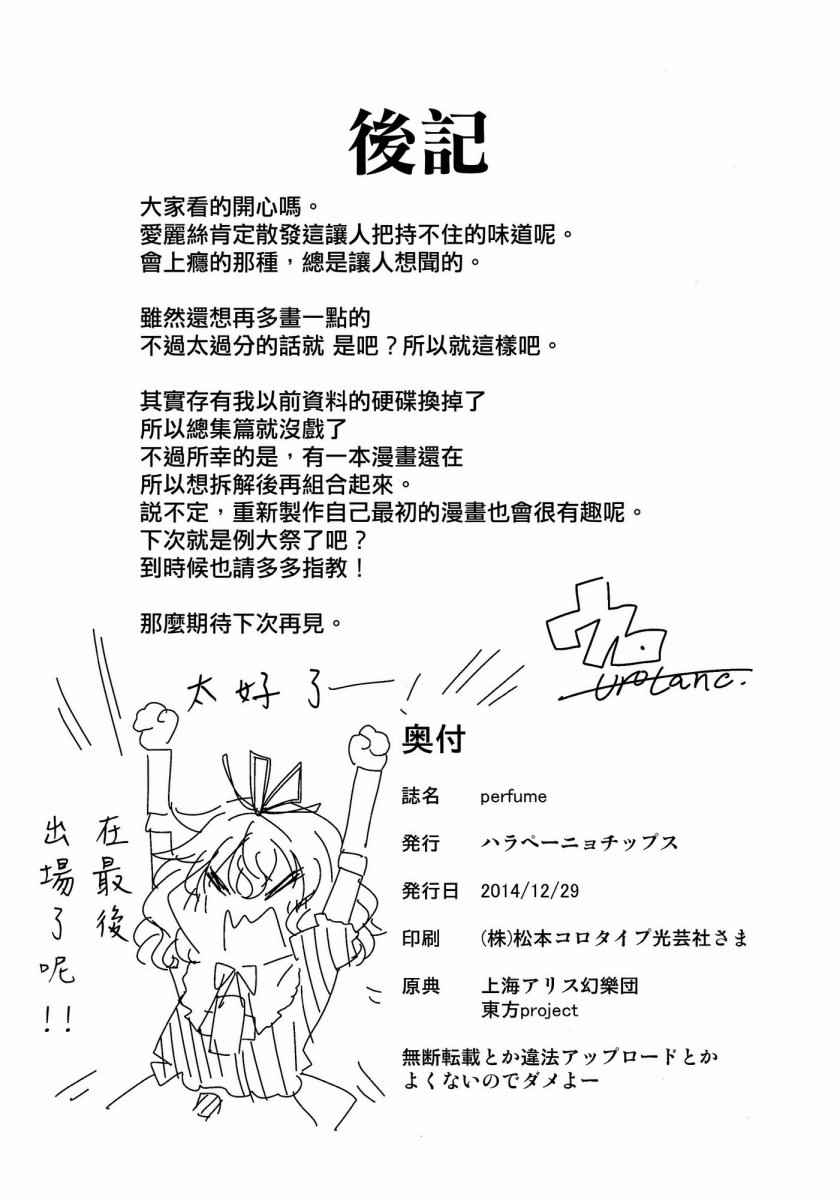 後記
大家看的開心嗎。
愛麗絲肯定散發這讓人把持不住的味道呢。
會上癮的那種，總是讓人想聞的。
雖然還想再多畫一點的
不過太過分的話就 是吧？所以就這樣吧。
其實存有我以前資料的硬碟換掉了
所以總集篇就沒戲了
不過所幸的是，有一本漫畫還在
所以想拆解後再組合起來。
説不定，重新製作自己最初的漫畫也會很有趣呢。
下次就是例大祭了吧？
到時候也請多多指教！
那麼期待下次再見。
ウロ
urotanc.
太好了一
在最後
出場了呢!!
奥付
誌名 perfume
発行 ハラペーニョチップス
発行日 2014/12/29
印刷 (株)松本コロタイプ光芸社さま
原典 上海アリス幻樂団
東方project
無断転載とか違法アップロードとか
よくないのでダメよー